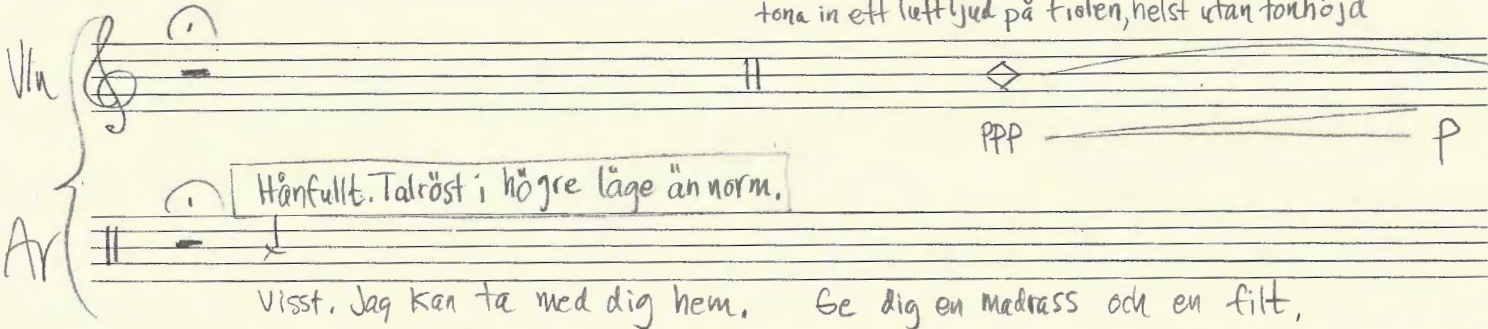 tona in ett luftljud på fiolen, helst utan tonhöjd
Vln
ppp p
Hånfullt. Talröst i högre läge än norm.
Ar
Visst. Jag kan ta med dig hem. Ge dig en madrass och en filt,